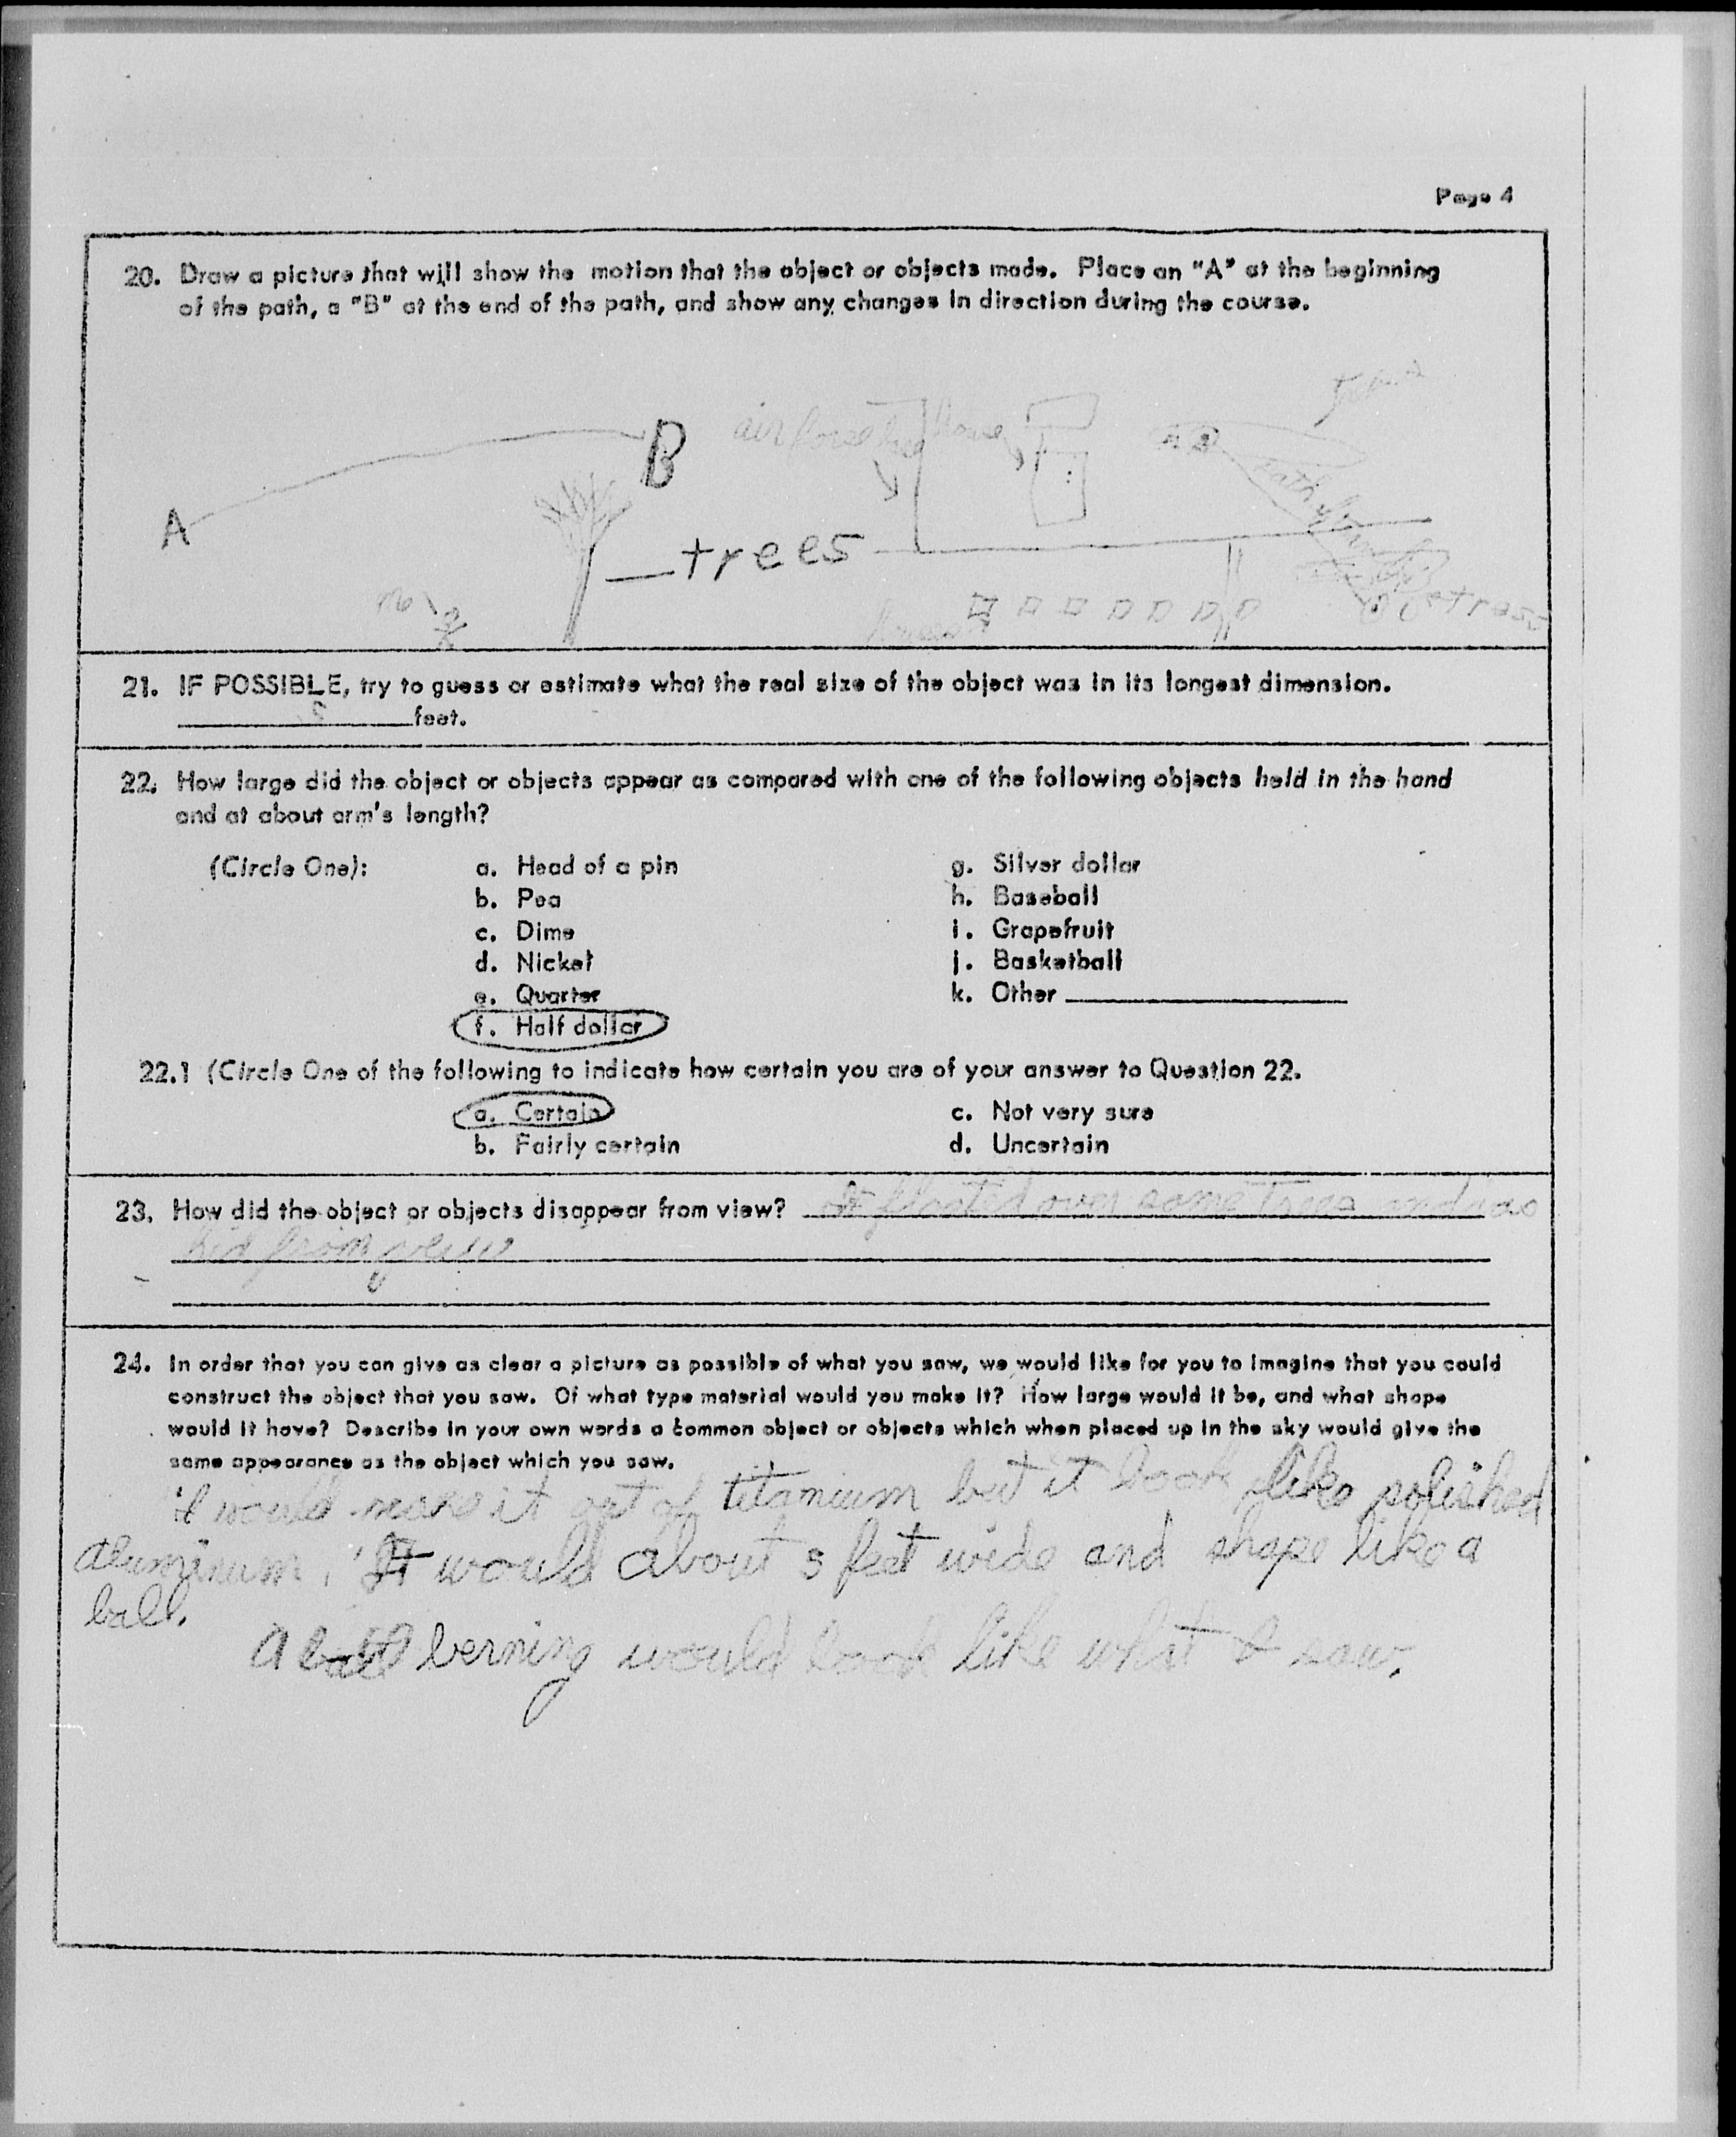 Page 4
20. Draw a picture that will show the motion that the object or objects made. Place an "A" at the beginning
of the path, a "B" at the end of the path, and show any changes in direction during the course.
A
B
air force
house
trees
me
trees
21. IF POSSIBLE, try to guess or estimate what the real size of the object was in its longest dimension.
feet.
22. How large did the object or objects appear as compared with one of the following objects held in the hand
and at about arm's length?
(Circle One): a. Head of a pin g. Silver dollar
b. Pea h. Baseball
c. Dime i. Grapefruit
d. Nickel j. Basketball
e. Quarter k. Other
f. Half dollar
22.1 (Circle One of the following to indicate how certain you are of your answer to Question 22.
a. Certain c. Not very sure
b. Fairly certain d. Uncertain
23. How did the object or objects disappear from view? It floated over some trees and was
hid from view
24. In order that you can give as clear a picture as possible of what you saw, we would like for you to imagine that you could
construct the object that you saw. Of what type material would you make it? How large would it be, and what shape
would it have? Describe in your own words a common object or objects which when placed up in the sky would give the
same appearance as the object which you saw.
I would make it out of titanium but it look like polished
aluminum. It would about 5 feet wide and shape like a
ball.
A berning would look like what I saw.